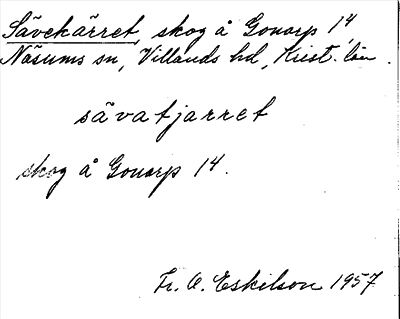 Sävekärret, skog å Gonarp 14,
Näsums sn, Villands hd, Krist. län.
sävatjarret
skog å Gonarp 14.
Fr. O. Eskilson 1957